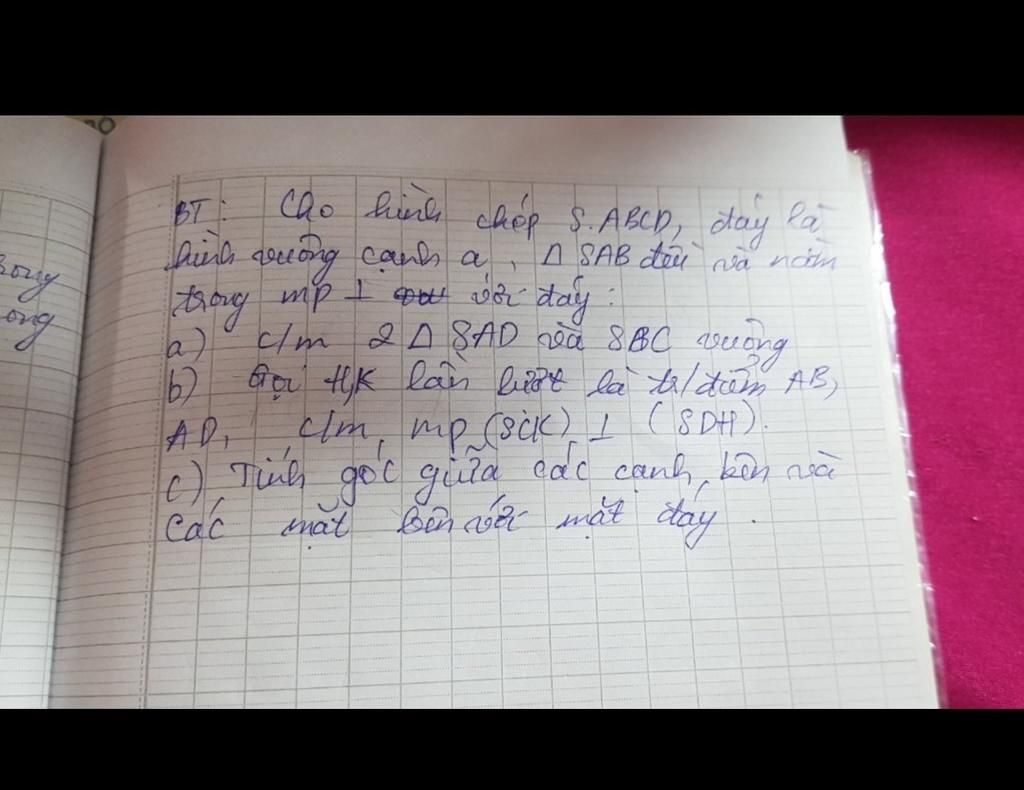 BT: Cho hình chóp S.ABCD, đáy là
hình vuông cạnh a, Δ SAB đều và nằm
trong mp ⊥ với đáy:
a) c/m 2 Δ SAD và SBC vuông
b) Gọi H,K lần lượt là tr/điểm AB,
AD, c/m mp (SCK) ⊥ (SDH).
c) Tính góc giữa các cạnh bên và
các mặt bên với mặt đáy.
rong
ong